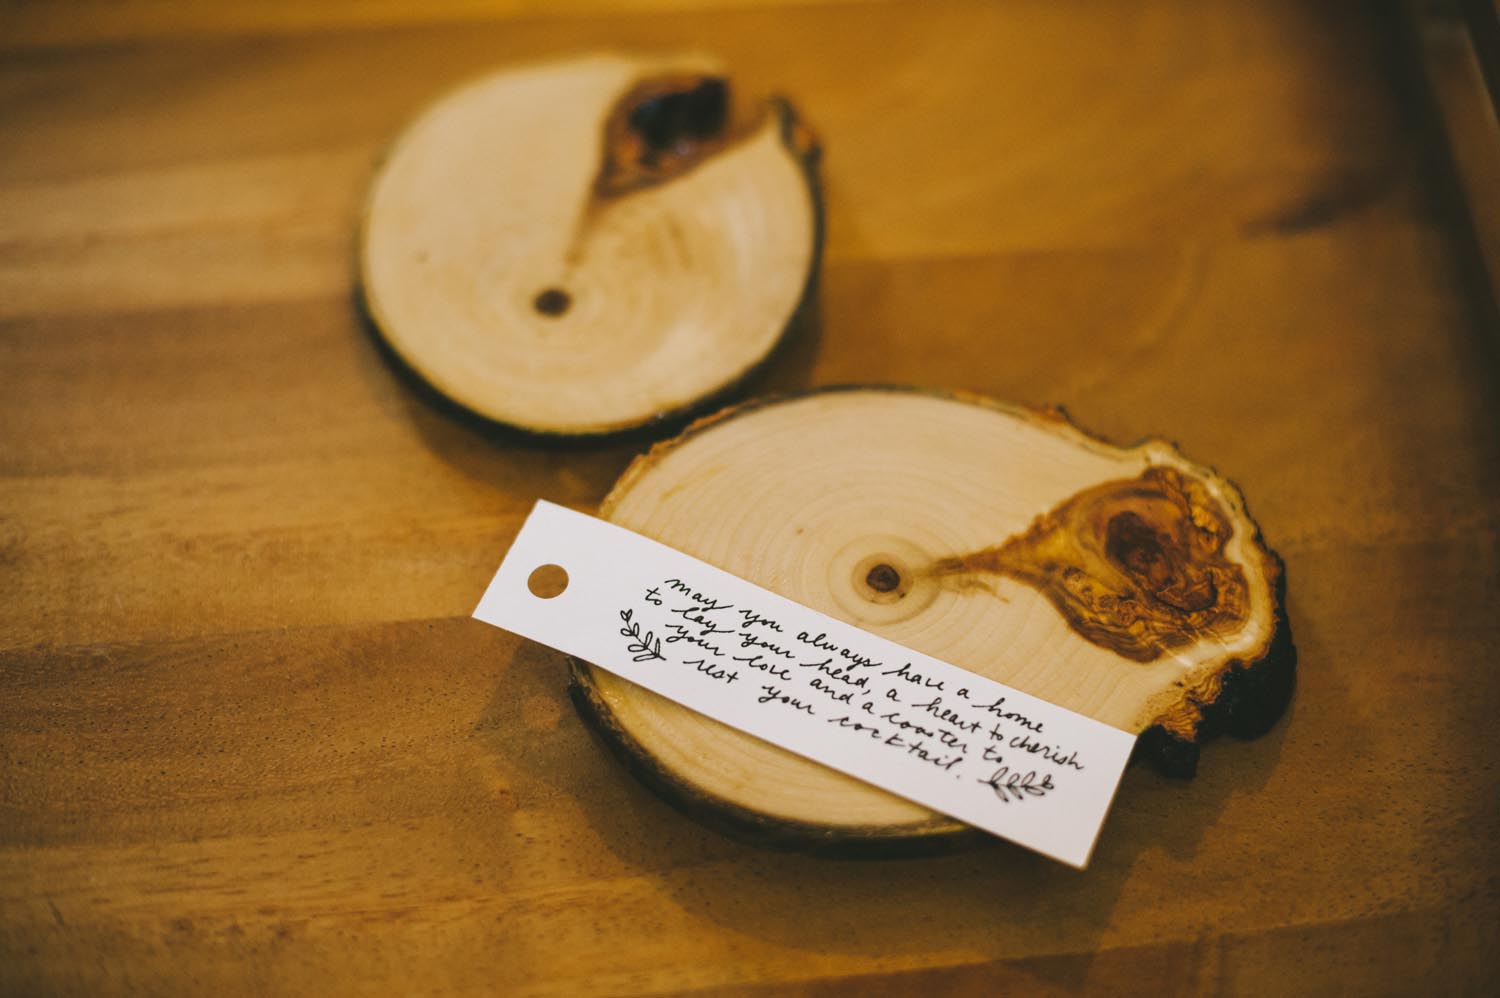 may you always have a home
to lay your head, a heart to cherish
your love and a coaster to
rest your cocktail.